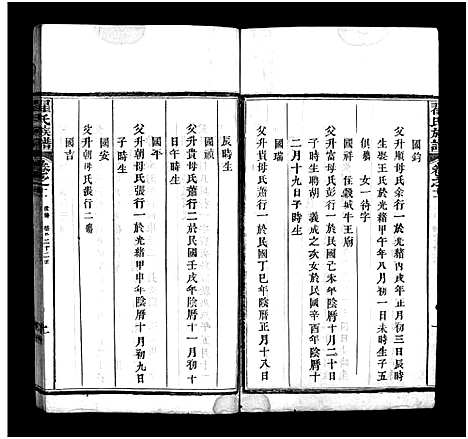 國鈞
父升順母氏余行一於光緒丙戌年正月初三日長時
生娶王氏於光緒甲午年八月初一日未時生子五
俱殤 女一待字
國祥 住穀城牛王廟
父升富母氏黃行一於民國己未年陰曆十月二十日
子時生聘胡 義成之次女於民國辛酉年陰曆
二月十九日子時生
國瑞
父升貴母氏蕭行一於民國丁巳年陰曆正月十八日
辰時生
國禎
父升貴母氏蕭行二於民國壬戌年陰曆十一月初十
日午時生
國平
父升朝母氏張行一於光緒甲申年陰曆十月初九日
子時生
國安
父升朝母氏張行二殤
國吉
翟氏族譜